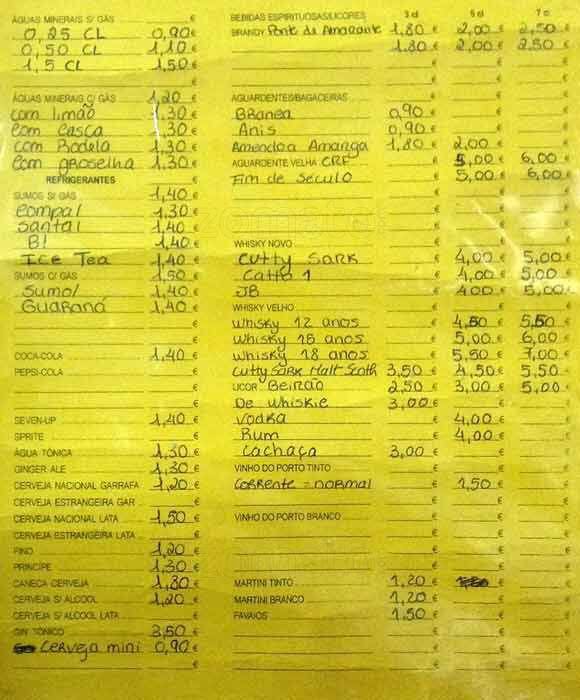 ÁGUAS MINERAIS S/ GÁS
0,25 CL 0,90 €
0,50 CL 1,10 €
1,5 CL 1,50 €
€
€
ÁGUAS MINERAIS C/ GÁS 1,20 €
com limão 1,30 €
com casca 1,30 €
com Rodela 1,30 €
com groselha 1,30 €
REFRIGERANTES
SUMOS S/ GÁS 1,40 €
compal 1,30 €
santal 1,40 €
B! 1,40 €
Ice Tea 1,40 €
SUMOS C/ GÁS 1,50 €
Sumol 1,40 €
Guaraná 1,40 €
€
€
COCA-COLA 1,40 €
PEPSI-COLA €
€
€
SEVEN-UP 1,40 €
SPRITE €
ÁGUA TÓNICA 1,30 €
GINGER ALE 1,30 €
CERVEJA NACIONAL GARRAFA 1,20 €
CERVEJA ESTRANGEIRA GAR €
CERVEJA NACIONAL LATA 1,50 €
CERVEJA ESTRANGEIRA LATA €
FINO 1,20 €
PRINCÍPE 1,30 €
CANECA CERVEJA 1,80 €
CERVEJA S/ ALCOOL 1,20 €
CERVEJA S/ ALCOOL LATA €
GIN TÓNICO 3,50 €
Cerveja mini 0,90 €
€
BEBIDAS ESPIRITUOSAS/LICORES 3 cl 5 cl 7 cl
BRANDY Ponte de Amarante 1,80 € 2,00 € 2,50 €
1,80 € 2,00 € 2,50 €
AGUARDENTES/BAGACEIRAS
BRanca 0,90 €
Anis 0,90 €
Amendoa Amarga 1,80 € 2,00 €
AGUARDENTE VELHA CRF € 5,00 € 6,00 €
Fim de seculo € 5,00 € 6,00 €
WHISKY NOVO
CUTTY SARK € 4,00 € 5,00 €
€ 4,00 € 5,00 €
JB € 4,00 € 5,00 €
WHISKY VELHO
Whisky 12 anos € 4,50 € 5,50 €
Whisky 15 anos € 5,00 € 6,00 €
Whisky 18 anos € 5,50 € 7,00 €
Cutty Sark Malt 3,50 € 4,50 € 5,50 €
LICOR Beirão 2,50 € 3,00 € 5,00 €
De Whiskie 3,00 €
Vodka € 4,00 €
Rum € 4,00 €
Cachaça 3,00 €
VINHO DO PORTO TINTO
Corrente = normal € 1,50 €
VINHO DO PORTO BRANCO
MARTINI TINTO 1,20 €
MARTINI BRANCO 1,20 €
FAVAIOS 1,50 €